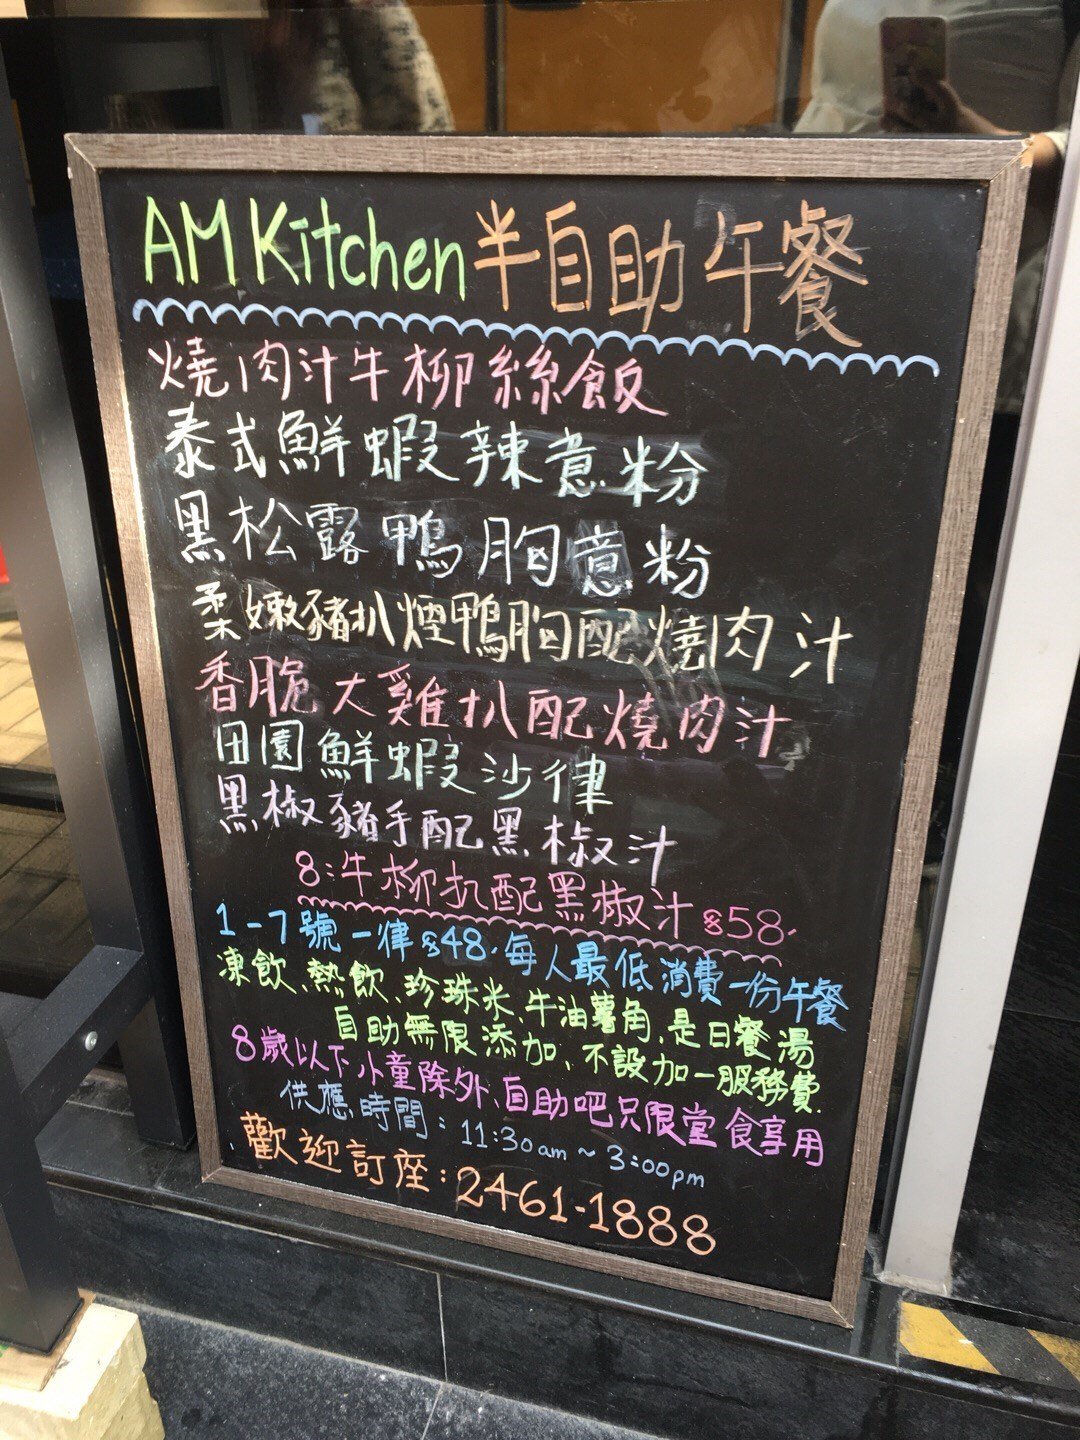 AM Kitchen 半自助午餐
燒肉汁牛柳絲飯
泰式鮮蝦辣意粉
黑松露鴨胸意粉
柔嫩豬扒煙鴨胸配燒肉汁
香脆大雞扒配燒肉汁
田園鮮蝦沙律
黑椒豬手配黑椒汁
8:牛柳扒配黑椒汁 $58.
1-7號一律$48,每人最低消費一份午餐
凍飲、熱飲、珍珠米、牛油薯角、是日餐湯
自助無限添加、不設加一服務費.
8歲以下小童除外、自助吧只限堂食享用
供應時間:11:30am~3:00pm
歡迎訂座:2461-1888